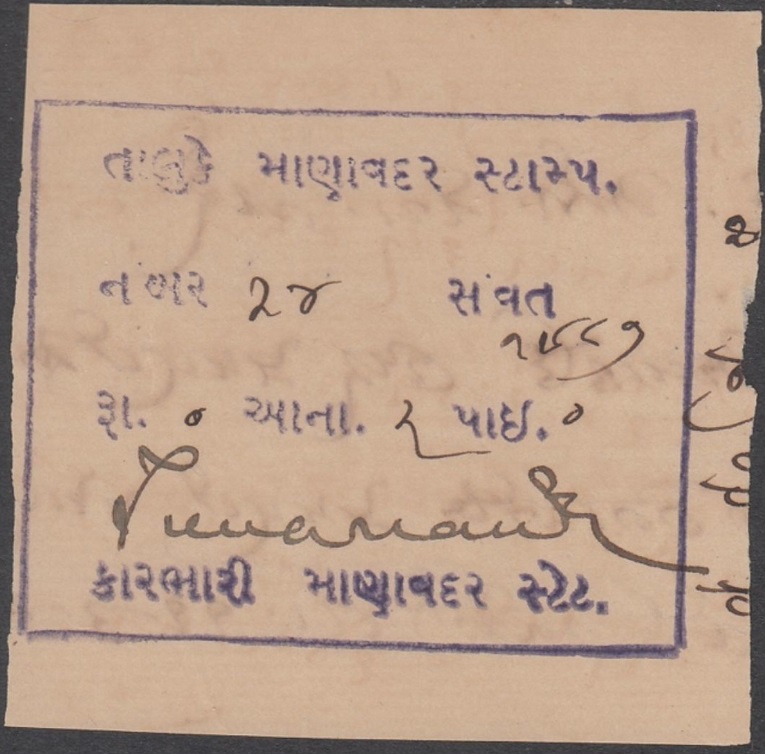 તાલુકે માણાવદર સ્ટામ્પ.
નંબર ૨૪ સંવત
રૂા. ૦ આના. ૨ પાઇ. ૦
કારભારી માણાવદર સ્ટેટ.